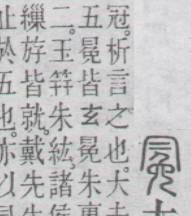 冕
冠。析言之也。大夫
五冕皆玄冕朱裏
二。玉笄朱紘。諸侯
繅斿皆就。戴先
於五也。亦以